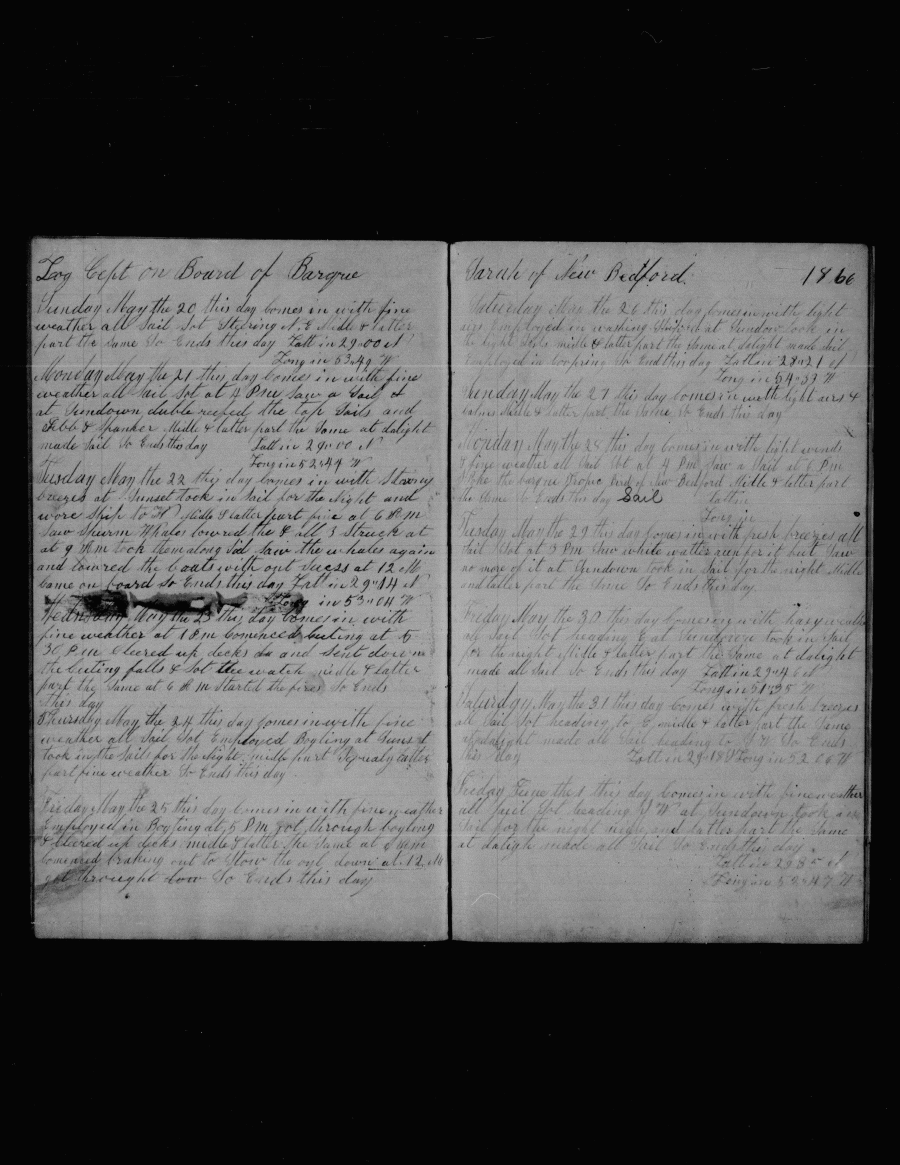 Log Cept on Board of Barque
Sunday May the 20 this day Comes in with fine
weather all Sail Sot Steering N. E Midle & latter
part the Same So Ends this day Latt in 29-00 N
Long in 53-49 W
Monday May the 21 this day Comes in with fine
weather all Sail Sot at 4 Pm Saw a Sail &
at Sundown duble reefed the top Sails and
Jibb & Spanker Midle & latter part the Same at dalight
made Sail So Ends this day Latt in 29-00 N
Long in 52-44 W
Tusday May the 22 this day Comes in with Strong
breezes at Sunset took in Sail for the Night and
wore Ship to W Midle & latter part fine at 6 A m
Saw Spurm Whales lowred the & 3 Struck at
at 9 A m took them along Sid Saw the whales again
and lowred the boats with out Suc2s at 12 M
Came on board So Ends this day Lat in 29-14 N
Long in 53-04 W
Wednsday May the 23 this day Comes in with
fine weather at 1 Pm Comenced Cuting at 5
30 P m Cleered up decks and Sent down
the Cuting falls & Sot the watch midle & latter
part the Same at 6 A M Started the fires So Ends
this day
Thursday May the 24 this day Comes in with fine
weather all Sail Sot Employed Boyling at Sunset
took in the Sails for the Night midle part Squaly latter
part fine weather So Ends this day
Friday May the 25 this day Comes in with fine weather
Employed in Boyling at 5 P m got through boylong
& cleered up decks midle & latter the Same at
Comenced braking out to Stow the oyl down at 12 M
got throught So Ends this day
Sarah of New Bedford 1866
Saturday May the 26 this day Comes in with light
airs Employed in washing at Sundow took in
the light Sails midle & latter part the Same at dalight made Sail
Employed in Coopring So End this day Latt in 28-21 N
Long in 54-39 W
Sunday May the 27 this day Comes in with light airs &
Calms Midle & latter part the Same So Ends this day
Monday May the 28 this day Comes in with light winds
& fine weather all Sail Sot at 4 Pm Saw a Sail at 6 Pm
Spoke the barque Tropic Bird of New Bedford Midle & latter part
the Same So Ends this day Sail Latt in
Long in
Tusday May the 29 this day Comes in with fresh breezes all
Sail Sot at 3 Pm Saw white watter run for it but Saw
no more of it at Sundown took in Sail for the night Midle
and latter part the Same So Ends this day
Friday May the 30 this day Comes in with hazy weather
all Sail Sot heading E at Sundown took in Sail
for the night Midle & latter part the Same at dalight
made all Sail So Ends this day Latt in 29-4 N
Long in 51-35 W
Saturday May the 31 this day Comes with fresh breezes
all Sail Sot heading to E midle & latter part the Same
at dalight made all Sail heading to S W So Ends
this day Latt in 29-18 N Long in 52 00 W
Friday June the 1 this day Comes in with fine weather
all Sail Sot heading S W at Sundown took in
Sail for the night midle and latter part the Same
at daligh made all Sail So Ends this day
Latt in 29 35 N
Long in 52-47 W